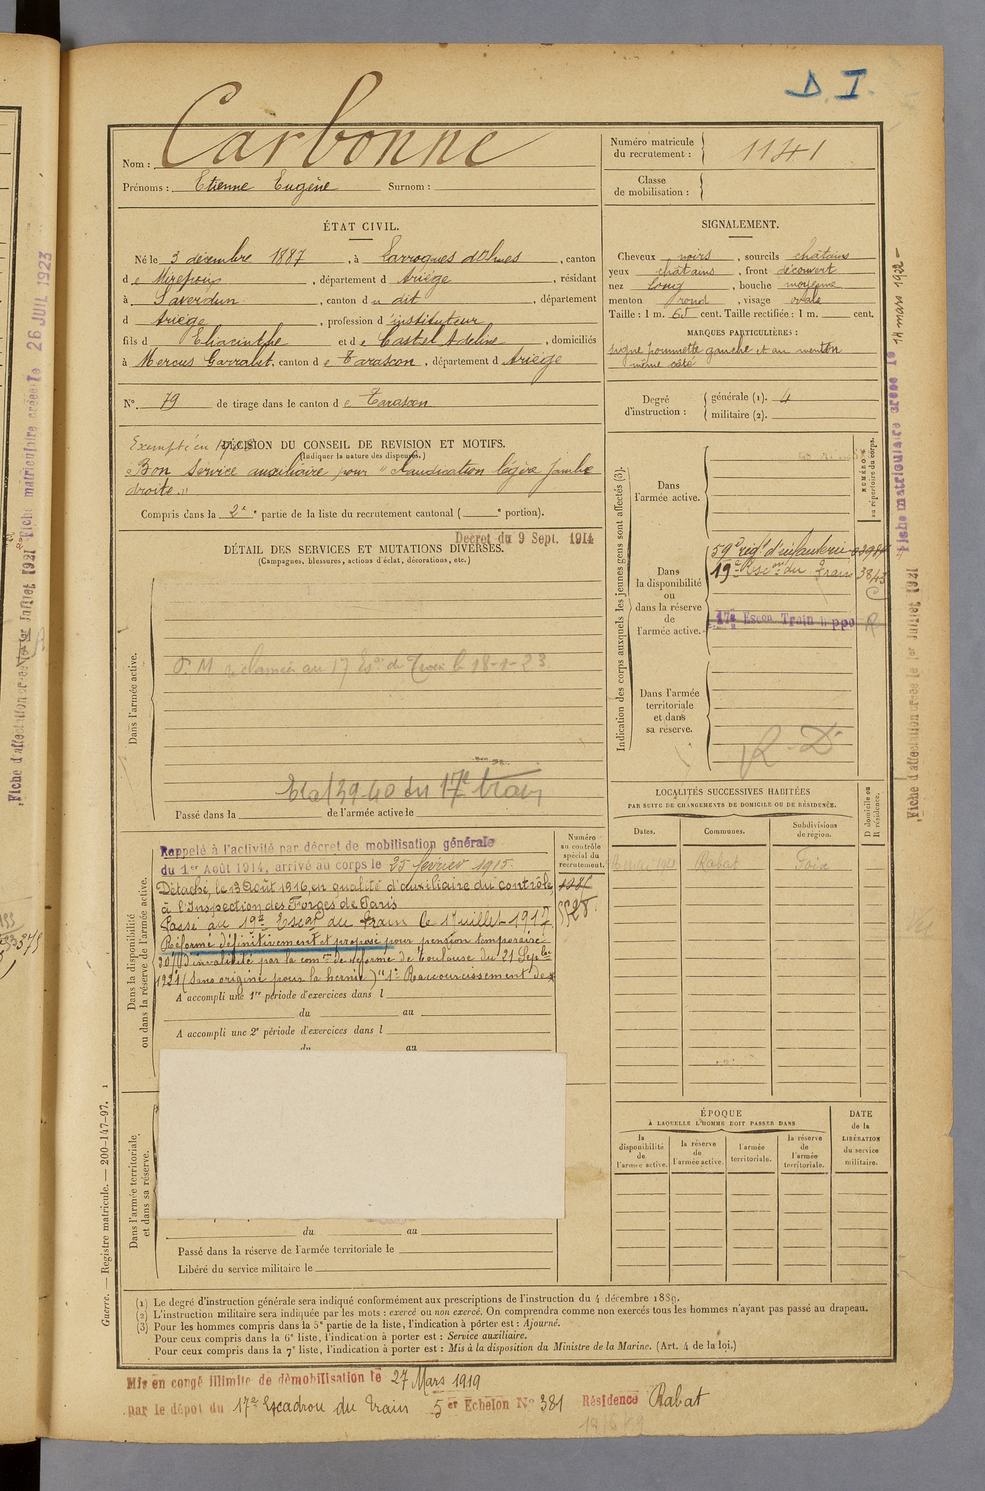 D. I.
Nom : Carbonne
Prénoms : Etienne Eugène Surnom :
Numéro matricule du recrutement : 1141
Classe de mobilisation :
ÉTAT CIVIL.
Né le 3 décembre 1887, à Larroques d'Olmes, canton
de Mirepoix, département d Ariège, résidant
à Saverdun, canton du dit, département
d Ariège, profession d'instituteur
fils d Hiacinthe et de Castel Adeline, domiciliés
à Mercus Garrabet, canton de Tarascon, département d Ariège
N° 79 de tirage dans le canton de Tarascon
SIGNALEMENT.
Cheveux noirs, sourcils châtains
yeux châtains, front découvert
nez long, bouche moyenne
menton rond, visage ovale
Taille : 1 m. 65 cent. Taille rectifiée : 1 m. cent.
MARQUES PARTICULIÈRES :
signe pommette gauche et au menton
même côté
Degré d'instruction : générale (1). 4
militaire (2).
Exempté en
DÉCISION DU CONSEIL DE REVISION ET MOTIFS.
(Indiquer la nature des dispenses.)
Bon service auxiliaire pour "Claudication légère jambe
droite."
Compris dans la 2e partie de la liste du recrutement cantonal ( portion).
Decret du 9 Sept. 1914
DÉTAIL DES SERVICES ET MUTATIONS DIVERSES.
(Campagnes, blessures, actions d'éclat, décorations, etc.)
Dans l'armée active.
réclamée au 17 Esc. de Train le 18-1-23
39-40 du 17e train
Passé dans la de l'armée active le
Indication des corps auxquels les jeunes gens sont affectés (3).
NUMÉROS au répertoire du corps.
Dans l'armée active.
Dans la disponibilité ou dans la réserve de l'armée active.
59e régt d'infanterie
19e Escon du Train 3843
17e Escon Train hippo R
Dans l'armée territoriale et dans sa réserve.
R-D
LOCALITÉS SUCCESSIVES HABITÉES
PAR SUITE DE CHANGEMENTS DE DOMICILE OU DE RÉSIDENCE.
Dates. Communes. Subdivisions de région. D domicile ou R résidence.
Rabat Foix
Dans la disponibilité ou dans la réserve de l'armée active.
Numéro au contrôle spécial du recrutement.
Rappelé à l'activité par décret de mobilisation générale
du 1er Août 1914, arrivé au corps le 25 février 1915.
Détaché, le 13 Août 1916, en qualité d'auxiliaire du contrôle,
à l'Inspection des Forges de Paris
Passé au 19e Escon du Train le 1er juillet 1917
Réformé définitivement et proposé pour pension temporaire
20% d'invalidité par la comon de réforme de Toulouse du 21 Septbre
1921 (Sans origine pour la hernie) "1° Raccourcissement de
A accompli une 1re période d'exercices dans l
du au
A accompli une 2e période d'exercices dans l
du au
Dans l'armée territoriale et dans sa réserve.
du au
Passé dans la réserve de l'armée territoriale le
Libéré du service militaire le
ÉPOQUE
À LAQUELLE L'HOMME DOIT PASSER DANS
la disponibilité de l'armée active.
la réserve de l'armée active.
l'armée territoriale.
la réserve de l'armée territoriale.
DATE de la LIBÉRATION du service militaire.
(1) Le degré d'instruction générale sera indiqué conformément aux prescriptions de l'instruction du 4 décembre 1889.
(2) L'instruction militaire sera indiquée par les mots : exercé ou non exercé. On comprendra comme non exercés tous les hommes n'ayant pas passé au drapeau.
(3) Pour les hommes compris dans la 5e partie de la liste, l'indication à porter est : Ajourné.
Pour ceux compris dans la 6e liste, l'indication à porter est : Service auxiliaire.
Pour ceux compris dans la 7e liste, l'indication à porter est : Mis à la disposition du Ministre de la Marine. (Art. 4 de la loi.)
Mis en congé illimité de démobilisation le 27 Mars 1919
par le dépôt du 17e Escadron du Train 5er Echelon No 381 Résidence Rabat
Guerre. — Registre matricule. — 200-147-97.
Fiche matriculaire créée le 14 mars 1932
Fiche d'affectation créée le 1er Juillet 1921
Fiche matriculaire créée le 26 JUIL 1923
Fiche d'affectation créée le 1er Juillet 1921